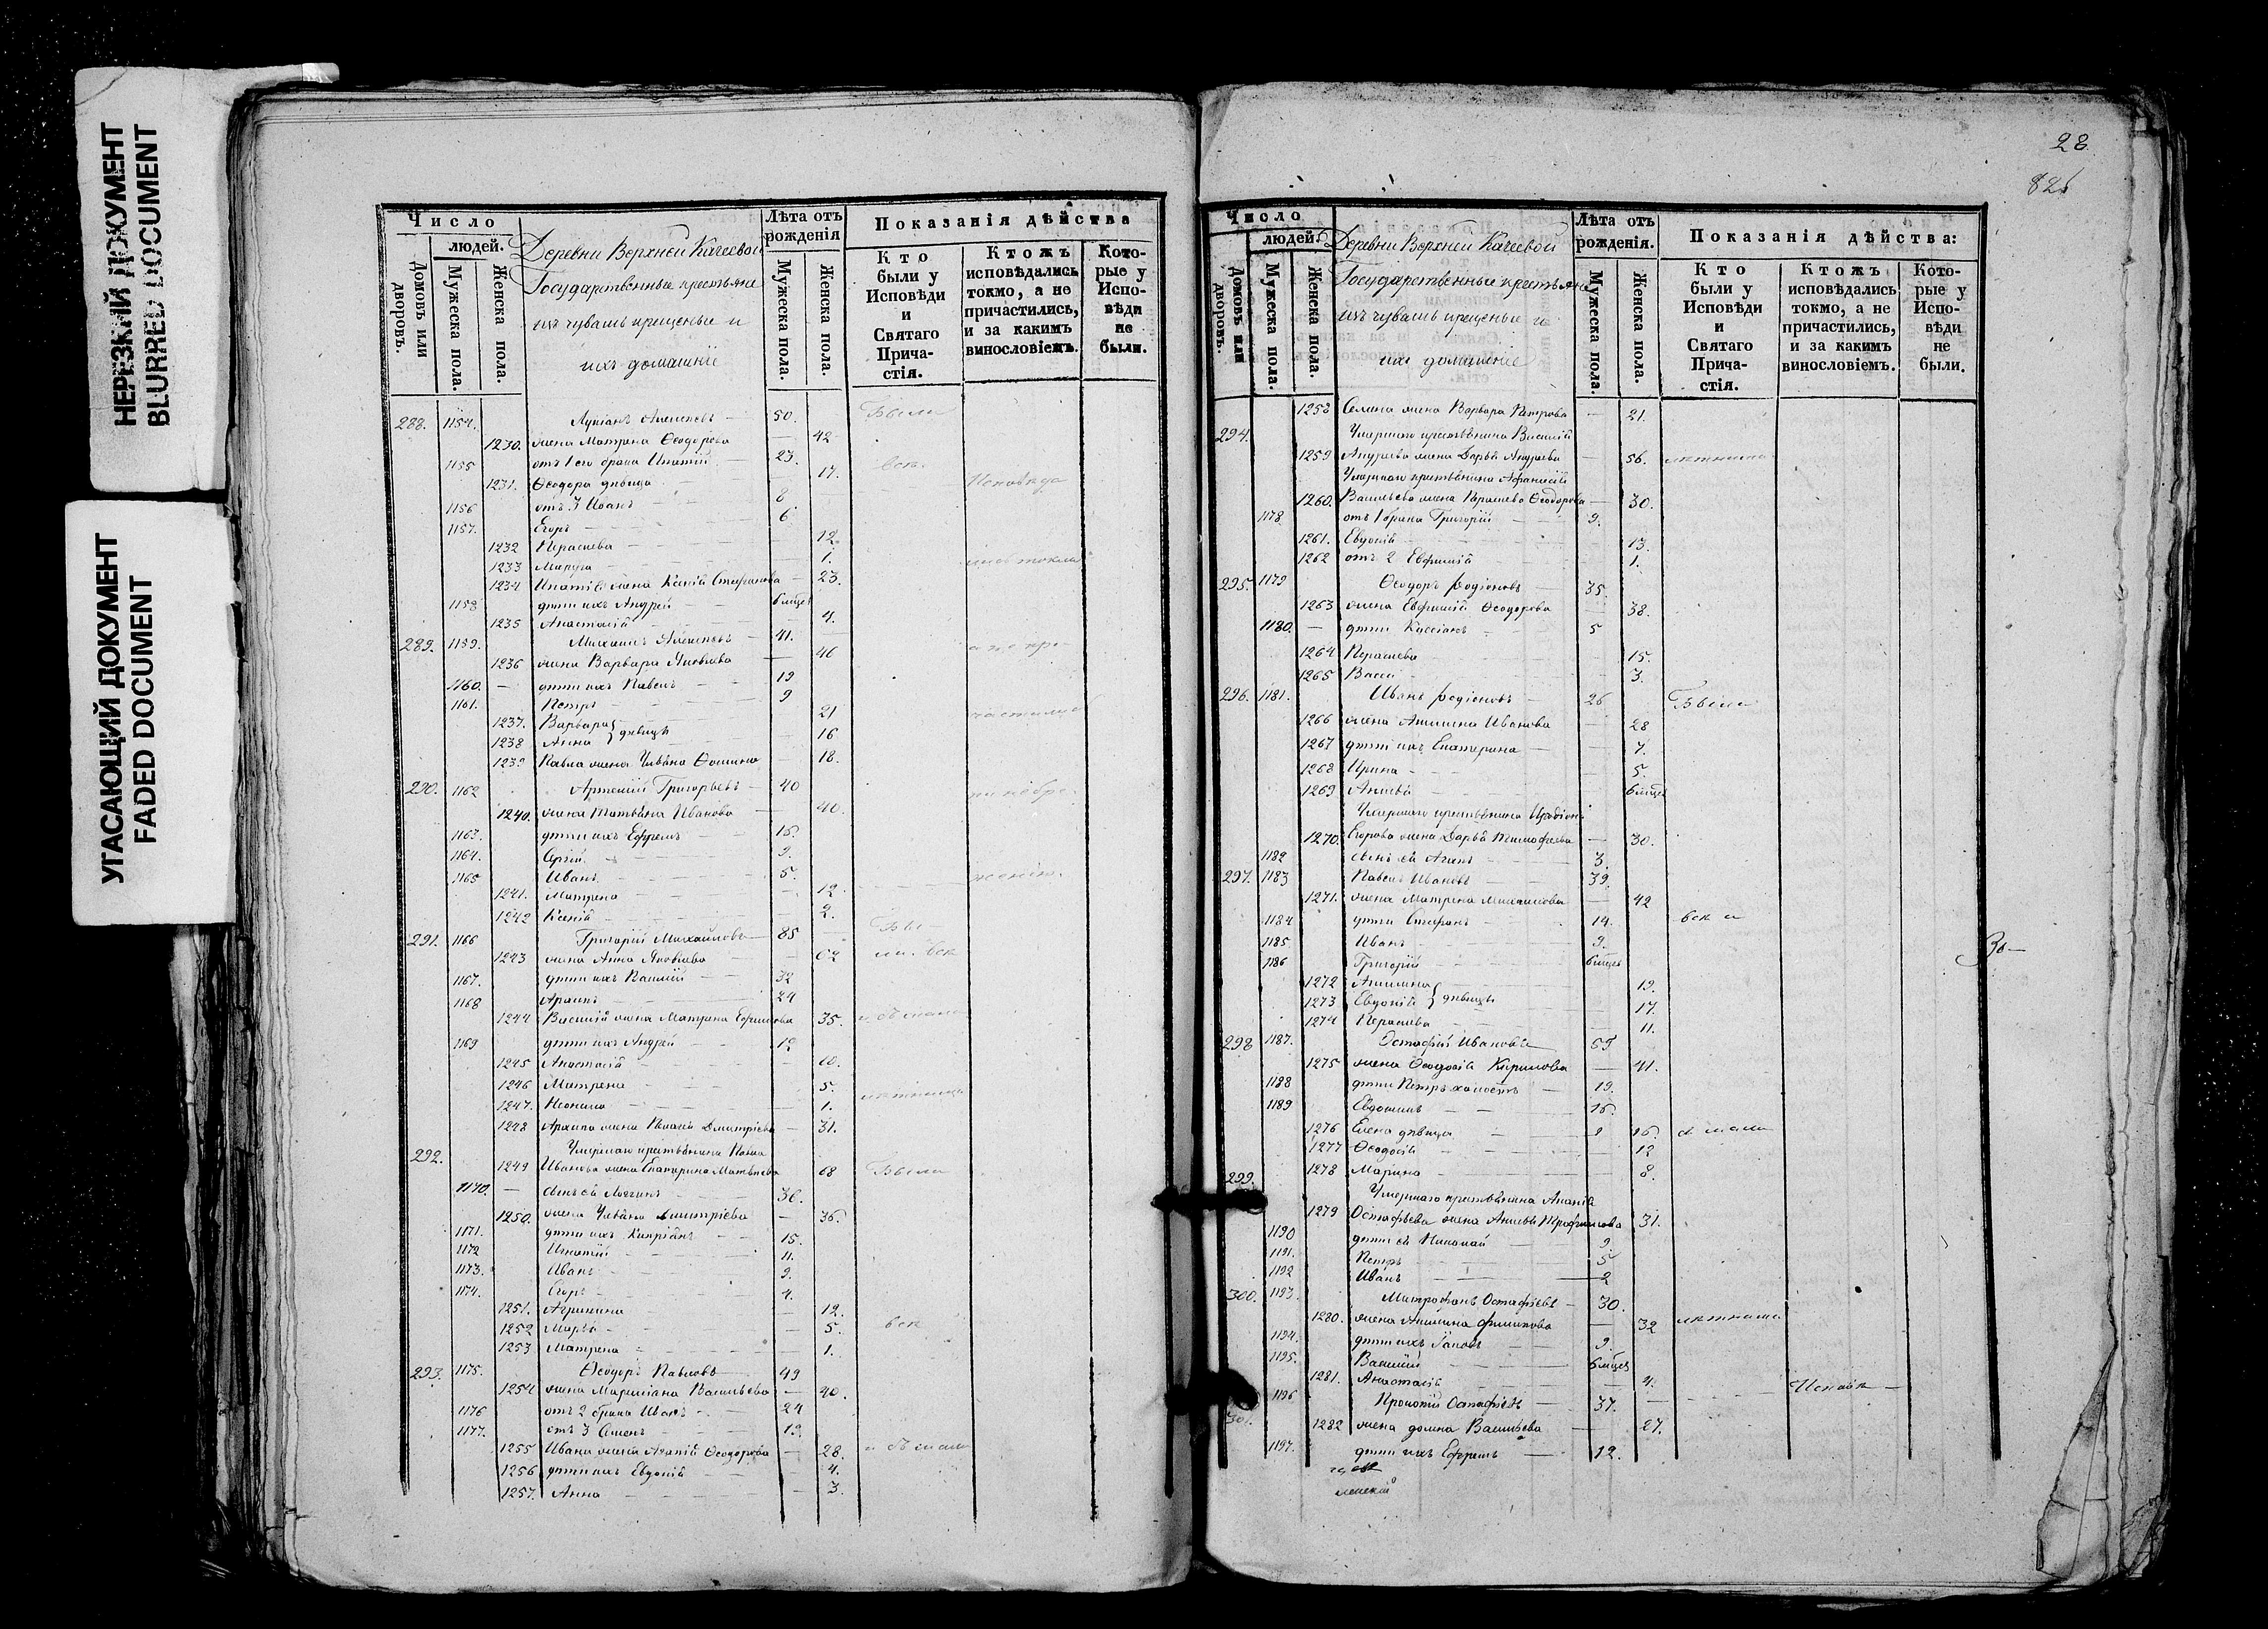 НЕРЕЗКИЙ ДОКУМЕНТ
BLURRED DOCUMENT
УГАСАЮЩИЙ ДОКУМЕНТ
FADED DOCUMENT
Число
людей.
Домовъ или дворовъ.
Мужеска пола.
Женска пола.
Деревни Верхней Качеевой
Государственные крестьяне
изъ чувашъ крещеные и
ихъ домашніе
Лѣта отъ рожденія
Мужеска пола.
Женска пола.
Показанія дѣйства
Кто были у Исповѣди и Святаго Причастія.
Ктожъ исповѣдались токмо, а не причастились, и за какимъ винословіемъ.
Которые у Исповѣди не были.
288. 1154. Лукіанъ Алексѣевъ 50. Были
1230. жена Матрена Ѳеодорова 42
1155 отъ 1 его брака Игнатій 23. всѣ
1231. Ѳеодора дѣвица 17. Исповѣда
1156 отъ 3 Иванъ 8
1157. Егоръ 6
1232 Параскева 12
1233 Марѳа 1.
1234 Игнатія жена Ксенія Стефанова 23.
1158 дѣти ихъ Андрей 6 мѣсяц
1235 Анастасія 4.
289. 1159. Михаилъ Алексѣевъ 41.
1236 жена Варвара Яковлева 46 а не при
1160. дѣти ихъ Павелъ 19
1161. Петръ 9
1237. Варвара 21 частились
1238 Анна дѣвицы 16
1239 Павла жена Ульяна Ѳомина 18.
290. 1162 Артемій Григорьевъ 40 по небре
1240. жена Татьяна Иванова 40.
1163. дѣти ихъ Ефремъ 15.
1164. Сергій 9.
1165 Иванъ 5. женію.
1241. Матрена 12.
1242 Ксенія 2.
291. 1166 Григорій Михайловъ 85 Бы
1243 жена Анна Яковлева 62 ли всѣ
1167. дѣти ихъ Василій 32
1168 Архипъ 24
1244 Василія жена Матрена Ефимова 35. съ мало
1169 дѣти ихъ Андрей 12
1245 Анастасія 10.
1246 Матрена 5. лѣтними
1247. Неонила 1.
1248 Архипа жена Пелагія Дмитріева 31.
292. Умершаго крестьянина Павла
1249 Иванова жена Екатерина Матвѣева 68 Были
1170. сынъ ея Логгинъ 36.
1250. жена Ульяна Дмитріева 36.
1171. дѣти ихъ Кипріанъ 15.
1172 Игнатій 11.
1173. Иванъ 9.
1174. Егоръ 4.
1251. Агрипина 12.
1252 Марья 5. всѣ
1253 Матрена 1.
293. 1175. Ѳеодоръ Павловъ 49
1254 жена Маркіана Васильева 40.
1176 отъ 2 брака Иванъ 24
1177. отъ 3 Семенъ 19
1255 Ивана жена Агапія Ѳеодорова 28. съ мало
1256 дѣти ихъ Евдокія 4.
1257. Анна 3.
28.
826
Число
людей.
Домовъ или дворовъ.
Мужеска пола.
Женска пола.
Деревни Верхней Качеевой
Государственные крестьяне
изъ чувашъ крещеные и
ихъ домашніе
Лѣта отъ рожденія.
Мужеска пола.
Женска пола.
Показанія дѣйства:
Кто были у Исповѣди и Святаго Причастія.
Ктожъ исповѣдались токмо, а не причастились, и за какимъ винословіемъ.
Которые у Исповѣди не были.
1258 Семена жена Варвара Петрова 21.
294. Умершаго крестьянина Василія
1259 Андреева жена Дарья Андреева 56. лѣтними
Умершаго крестьянина Афанасія
1260. Васильева жена Параскева Ѳеодорова 30.
1178 отъ 1 брака Григорій 9.
1261. Евдокія 13.
1262 отъ 2 Евфимія 1.
295. 1179 Ѳеодоръ Родіоновъ 35.
1263 жена Евфимія Ѳеодорова 38.
1180. дѣти Кассіанъ 5
1264 Параскева 15.
1265 Васса 3.
296. 1181. Иванъ Родіоновъ 26 Были
1266 жена Акилина Иванова 28
1267 дѣти ихъ Екатерина 7.
1268 Ирина 5.
1269 Анисья 6 мѣсяц
Умершаго крестьянина Иродіона
1270. Егорова жена Дарья Тимофеева 30.
1182 сынъ ея 3.
297. 1183 Павелъ Ивановъ 39.
1271. жена Матрена Михайлова 42
1184 дѣти Стефанъ 14. всѣ
1185 Иванъ 9.
1186 Григорій 6 мѣсяц
1272 Акилина 19.
1273 Евдокія дѣвицы 17.
1274 Параскева 11.
298 1187. Остафій Ивановъ
1275 жена Ѳеодосія Кирилова 41.
1188 дѣти Петръ холостъ 19.
1189 Евдокимъ 16.
1276 Елена дѣвица 16. съ мало
1277 Ѳеодосія 12
1278 Марина 8.
299. Умершаго крестьянина Ананія
1279 Остафьева жена Анисья Трофимова 31.
1190 дѣти ея Николай 9.
1191. Петръ 5
1192 Иванъ 2
300. 1193. Митрофанъ Остафьевъ 30.
1280. жена Акилина Филипова 32 лѣтними
1194. дѣти ихъ Іаковъ 9.
1195. Василій 6 мѣсяц
1281. Анастасія 4.
301. 1196 Прокопій Остафьевъ 37. Исповѣ
1282 жена Домна Васильева 27.
1197. дѣти ихъ Ефремъ 12.